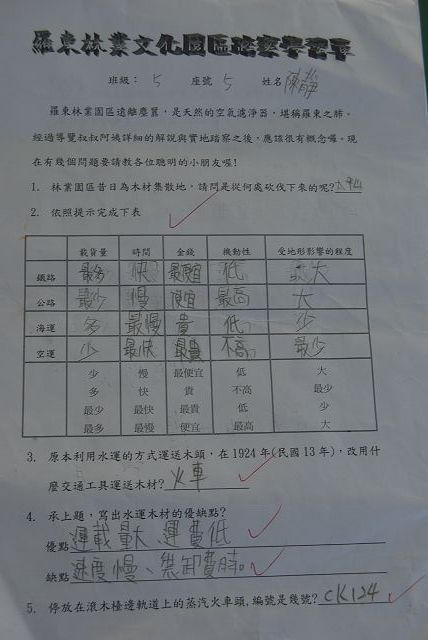 羅東林業文化園區踏察學習單
班級： 5 座號 5 姓名 陳靜
羅東林業園區遠離塵囂，是天然的空氣濾淨器，堪稱羅東之肺。
經過導覽叔叔阿姨詳細的解說與實地踏察之後，應該很有概念囉。現
在有幾個問題要請教各位聰明的小朋友喔!
1. 林業園區昔日為木材集散地，請問是從何處砍伐下來的呢?太平山
2. 依照提示完成下表
載貨量 時間 金錢 機動性 受地形影響的程度
鐵路 最多 快 最便宜 低 最大
公路 最少 慢 便宜 最高 大
海運 多 最慢 貴 低 少
空運 少 最快 最貴 不高 最少
少 慢 最便宜 低 大
多 快 貴 不高 最少
最少 最快 最貴 低 少
最多 最慢 便宜 最高 大
3. 原本利用水運的方式運送木頭，在1924年(民國13年)，改用什
麼交通工具運送木材? 火車
4. 承上題，寫出水運木材的優缺點?
優點 運載量大、運費低
缺點 速度慢、裝卸費時。
5. 停放在滾木檯邊軌道上的蒸汽火車頭,編號是幾號? CK124